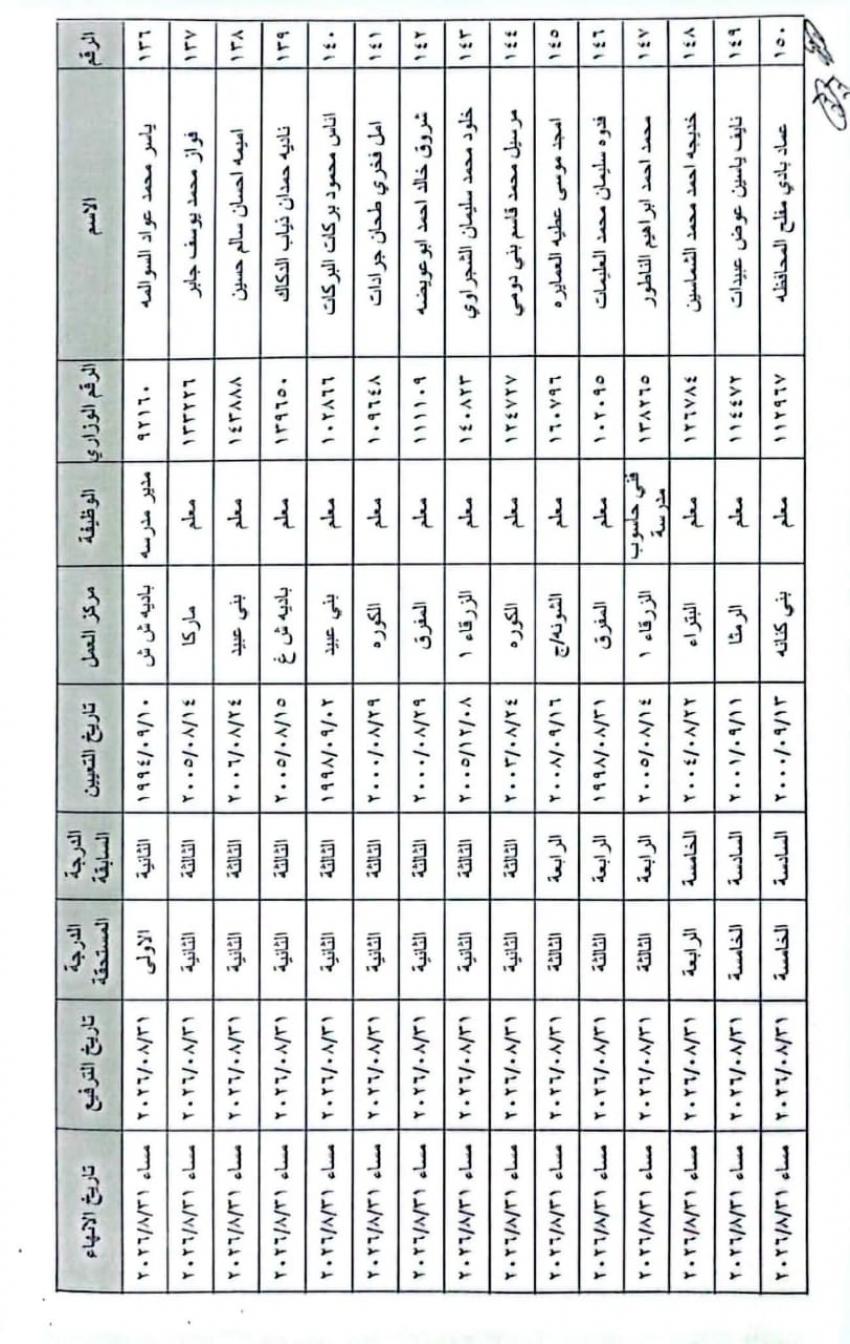 الرقم الاسم الرقم الوزاري الوظيفة مركز العمل تاريخ التعيين الدرجة السابقة الدرجة المستحقة تاريخ الترفيع تاريخ الانهاء
١٣٦ ياسر محمد عواد السوالمه ٩٢١٦٠ مدير مدرسه باديه ش ش ١٩٩٤/٠٩/١٠ الثانية الاولى ٢٠٢٦/٠٨/٣١ مساء ٢٠٢٦/٨/٣١
١٣٧ فواز محمد يوسف جابر ١٣٣٢٢٦ معلم ماركا ٢٠٠٥/٠٨/١٤ الثالثة الثانية ٢٠٢٦/٠٨/٣١ مساء ٢٠٢٦/٨/٣١
١٣٨ اميمه احسان سالم حسين ١٤٣٨٨٨ معلم بني عبيد ٢٠٠٦/٠٨/٢٤ الثالثة الثانية ٢٠٢٦/٠٨/٣١ مساء ٢٠٢٦/٨/٣١
١٣٩ ناديه حمدان ذياب الدكاك ١٣٩٦٥٠ معلم باديه ش غ ٢٠٠٥/٠٨/١٥ الثالثة الثانية ٢٠٢٦/٠٨/٣١ مساء ٢٠٢٦/٨/٣١
١٤٠ اناس محمود بركات البركات ١٠٢٨٦٦ معلم بني عبيد ١٩٩٨/٠٩/٠٢ الثالثة الثانية ٢٠٢٦/٠٨/٣١ مساء ٢٠٢٦/٨/٣١
١٤١ امل فخري طحان جرادات ١٠٩٦٤٨ معلم الكوره ٢٠٠٠/٠٨/٢٩ الثالثة الثانية ٢٠٢٦/٠٨/٣١ مساء ٢٠٢٦/٨/٣١
١٤٢ شروق خالد احمد ابو عويضه ١١١١٠٩ معلم المفرق ٢٠٠٠/٠٨/٢٩ الثالثة الثانية ٢٠٢٦/٠٨/٣١ مساء ٢٠٢٦/٨/٣١
١٤٣ خلود محمد سليمان الشجراوي ١٤٠٨٢٣ معلم الزرقاء ١ ٢٠٠٥/١٢/٠٨ الثالثة الثانية ٢٠٢٦/٠٨/٣١ مساء ٢٠٢٦/٨/٣١
١٤٤ مرسيل محمد قاسم بني دومي ١٢٤٧٢٧ معلم الكوره ٢٠٠٣/٠٨/٢٤ الثالثة الثانية ٢٠٢٦/٠٨/٣١ مساء ٢٠٢٦/٨/٣١
١٤٥ امجد موسى عطيه العمايره ١٦٠٧٩٦ معلم الشونه/ج ٢٠٠٨/٠٩/١٦ الرابعة الثالثة ٢٠٢٦/٠٨/٣١ مساء ٢٠٢٦/٨/٣١
١٤٦ فدوه سليمان محمد العليمات ١٠٢٠٩٥ معلم المفرق ١٩٩٨/٠٨/٣١ الرابعة الثالثة ٢٠٢٦/٠٨/٣١ مساء ٢٠٢٦/٨/٣١
١٤٧ محمد احمد ابراهيم الناطور ١٣٨٢٦٥ فني حاسوب مدرسة الزرقاء ١ ٢٠٠٥/٠٨/١٤ الرابعة الثالثة ٢٠٢٦/٠٨/٣١ مساء ٢٠٢٦/٨/٣١
١٤٨ خديجه احمد محمد الشماسين ١٢٦٧٨٤ معلم البتراء ٢٠٠٤/٠٨/٢٢ الخامسة الرابعة ٢٠٢٦/٠٨/٣١ مساء ٢٠٢٦/٨/٣١
١٤٩ نايف ياسين عوض عبيدات ١١٤٤٧٢ معلم الرمثا ٢٠٠١/٠٩/١١ السادسة الخامسة ٢٠٢٦/٠٨/٣١ مساء ٢٠٢٦/٨/٣١
١٥٠ عماد بادي مفلح المحافظه ١١٢٩٦٧ معلم بني كنانه ٢٠٠٠/٠٩/١٣ السادسة الخامسة ٢٠٢٦/٠٨/٣١ مساء ٢٠٢٦/٨/٣١